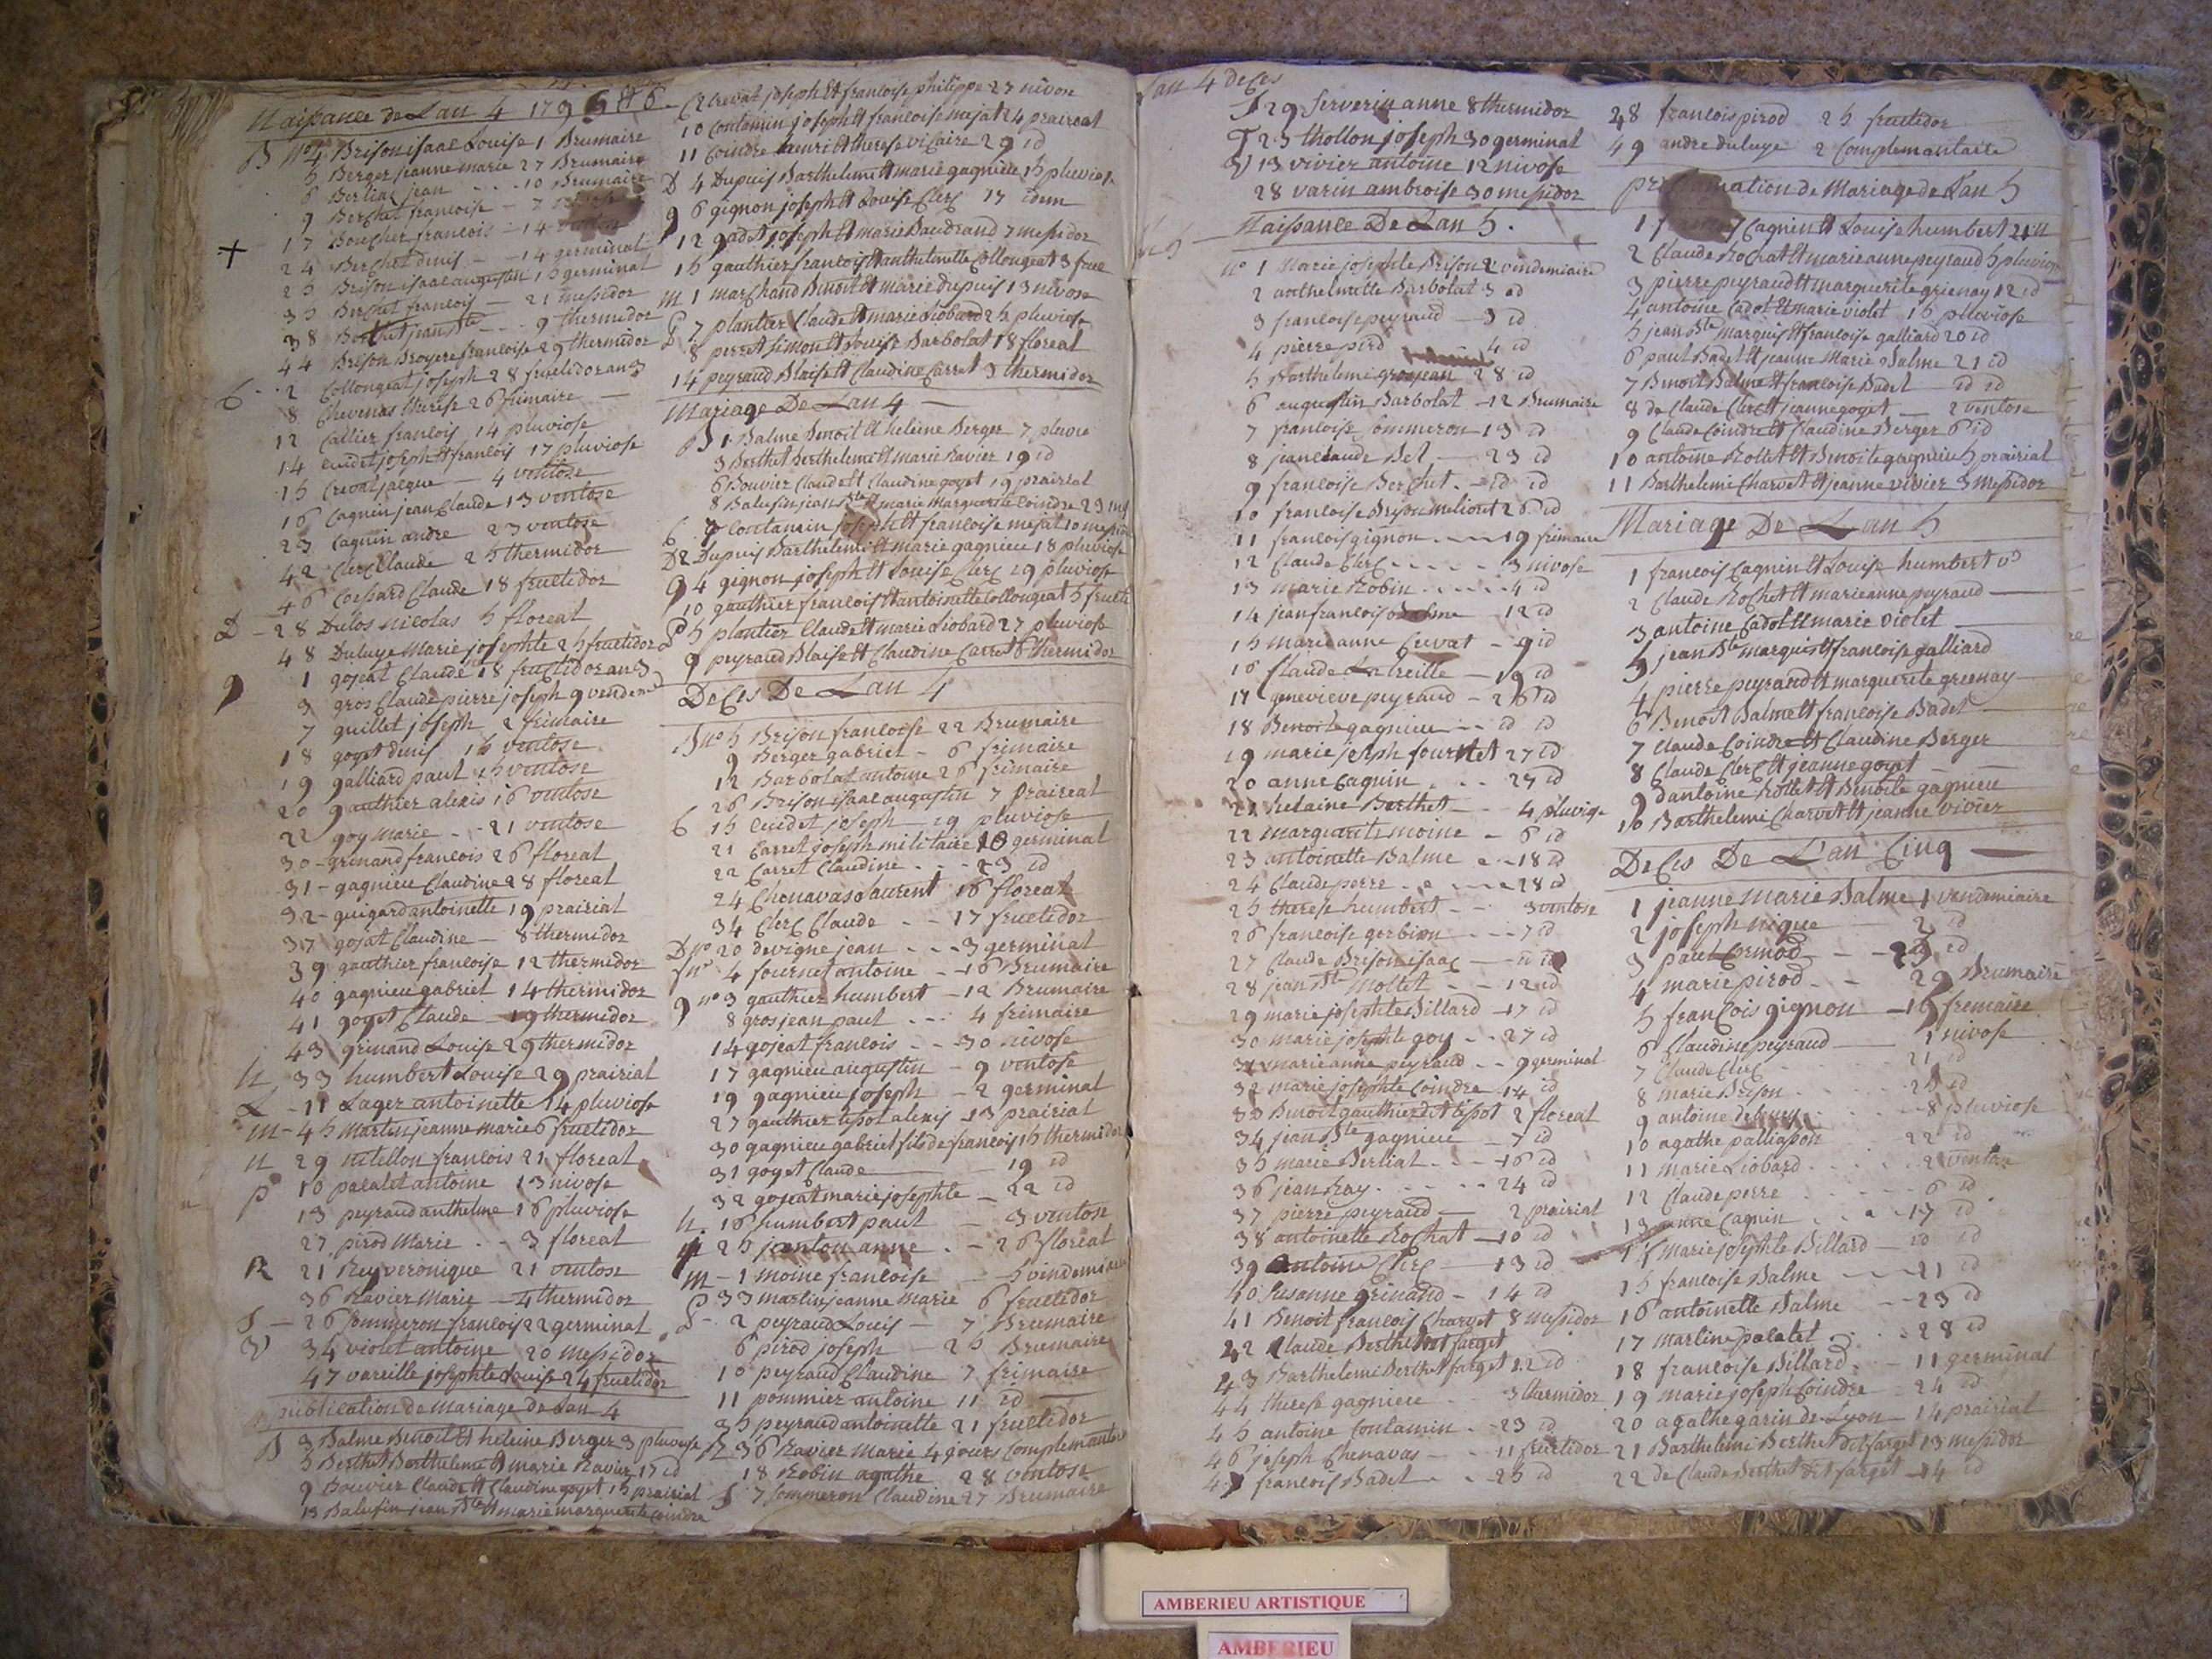 Naissance de Lan 4 1796
B n° 4 Brison isaac Louise 1 Brumaire
5 Berger jeanne marie 27 Brumaire
6 Berliat jean - - - 10 Brumaire
9 Berchet francoise - 7
17 Boucher francois - 14
24 Berchet denis - - 14 germinal
25 Brison isaac augustin 15 germinal
35 Berchet francois - 21 messidor
38 Berthet jean Bte - - 9 thermidor
44 Brison Broyere francoise 29 thermidor
C - 2 Collongeat joseph 28 fructidor an 3
8 Chevenas therese 26 frimaire -
12 Callier francois 14 pluviose
14 Cuidet joseph et francois 17 pluviose
15 Crevat jacque - 4 ventose
16 Cagnin jean Claude 13 ventose
23 Cagnin andre 23 ventose
42 Clerc Claude 25 thermidor
46 Cocssard Claude 18 fructidor
D - 28 Dulos nicolas 5 floreal
48 Duluye Marie josephte 25 fructidor
g 1 gojeat Claude 18 fructidor an 3
3 gros Claude pierre joseph 9 vendem
7 guillet joseph 2 frimaire
18 goyet denis 15 ventose
19 galliard paul 15 ventose
20 gauthier alexis 16 ventose
22 goy Marie - - 21 ventose
30 - grinand francois 26 floreal
31 - gagnieu Claudine 28 floreal
32 - guigard antoinette 19 prairial
37 gojat Claudine - 8 thermidor
39 gauthier francoise 12 thermidor
40 gagnieu gabriel 14 thermidor
41 goyet Claude - 19 thermidor
43 grinand Louise 29 thermidor
h 33 humbert Louise 29 prairial
L - 11 Lager antoinette 14 pluviose
m - 45 Martin jeanne marie 6 fructidor
n 29 nitellon francois 21 floreal
p 10 palatet antoine 13 nivose
13 peyraud anthelme 16 pluviose
27 pirod Marie - - 3 floreal
R 21 Rey veronique 21 ventose
36 Ravier Marie - 4 thermidor
S - 26 Sommeron francois 22 germinal
V 34 violet antoine 20 messidor
47 vareille josephte Louise 24 fructidor
publication de Mariage de Lan 4
B 3 Balme Benoit et heleine Berger 3 pluviose
5 Berthet Barthelemi et marie Ravier 17 id
9 Bouvier Claude et Claudine goyet 15 prairial
13 Balufin jean Bte et marie marguerite coindre
C 2 Crevat joseph et francoise philippe 27 nivose
10 Contamin joseph et francoise mejat 24 praireal
11 Coindre henri et therese vicaire 29 id
D 4 Dupuis Barthelemi et marie gagnieu 15 pluviose
g 6 gignon joseph et Louise Clerc 17 idem
12 gadet joseph et marie Baudrand 7 messidor
15 gauthier francois et anthelmette Collongeat 3 fruc
m 1 marchand Benoit et marie dupuis 13 nivose
P 7 plantier Claude et marie Liobard 25 pluviose
8 perret simon et Louise Barbolat 18 floreal
14 peyraud Blaise et Claudine Carret 3 thermidor
Mariage De Lan 4 -
B 1 Balme Benoit et heleine Berger 7 pluvio
3 Berthet Berthelemi et marie Ravier 19 id
6 Bouvier Claude et Claudine goyet 19 prairial
8 Balufin jean Bte et marie Marguerite Coindre 23 mes
C 7 Contamin joseph et francoise mejat 10 messid
D 2 Dupuis Barthelemi et marie gagnieu 18 pluviose
g 4 gignon joseph et Louise Clerc 29 pluviose
10 gauthier francois et antoinette Collongeat 5 fructi
P 5 plantier Claude et marie Liobard 27 pluviose
9 peyraud Blaise et Claudine Carret 6 thermidor
Deces De Lan 4
B n° 5 Brison francoise 22 Brumaire
9 Berger gabriel - 6 frimaire
12 Barbolat antoine 26 frimaire
26 Brison isaac augustin 7 Praireal
C 15 Cuidet joseph - 29 pluviose
21 Carret joseph militaire 18 germinal
22 Carret Claudine - - - 23 id
24 Chenavas Laurent 16 floreal
34 Clerc Claude - - 17 fructidor
D n° 20 devigne jean - - - 3 germinal
f n° 4 fournet antoine - 16 Brumaire
g n° 3 gauthier humbert - 12 Brumaire
8 gros jean paul - - - 4 frimaire
14 gojeat francois - - 30 nivose
17 gagnieu augustin - 9 ventose
19 gagnieu joseph - 2 germinal
27 gauthier tissot alexis - 13 prairial
30 gagnieu gabriel fils de francois 15 thermidor
31 goyet Claude - 19 id
32 gojeat marie josephte - 22 id
h. 16 humbert paul - 3 ventose
j 25 janton anne - - 26 floreal
m - 1 moine francoise - 5 vendemiaire
33 martin jeanne Marie 6 fructidor
P - 2 peyraud Louis - 7 Brumaire
6 pirod joseph - 25 Brumaire
10 peyraud Claudine 7 frimaire
11 pommier antoine 11 id
35 peyraud antoinette 21 fructidor
R 36 Ravier Marie 4 jours Complemantaire
18 Robin agathe 28 ventose
S 7 Sommeron Claudine 27 Brumaire
Lan 4 deces
S 29 Serverin anne 8 thermidor
T 23 thollon joseph 30 germinal
V 13 vivier antoine 12 nivose
28 varin ambroise 30 messidor
Naissance De Lan 5.
n° 1 Marie josephte Brison 2 vendemiaire
2 anthelmette Barbolat 3 id
3 francoise peyraud - 3 id
4 pierre pird 4 id
5 Barthelemi grosjean 28 id
6 augustin Barbolat - 12 Brumaire
7 francoise Sommeron 13 id
8 jean claude Bel - 23 id
9 francoise Berchet - id id
10 francoise Brison melioret 26 id
11 francois gignon - - - 19 frimaire
12 Claude Clerc - - - - - 3 nivose
13 marie Robin - - - - - 4 id
14 jean francois Balme - 12 id
15 marie anne Crevat - 9 id
16 Claude Labreille - 19 id
17 genevieve peyraud - 26 id
18 Benoite gagnieu - - id id
19 marie joseph fournet 27 id
20 anne Caguin - - 27 id
21 helaine Berthet - 4 pluviose
22 marguerite moine - 6 id
23 antoinette Balme - - 18 id
24 Claude perre - - - 28 id
25 therese humbert - - 3 ventose
26 francoise gerbion - - - 7 id
27 Claude Brison isaac - 11 id
28 jean Bte Mollet - - 12 id
29 marie josephte Billard - 17 id
30 marie josephte goy - - 27 id
31 marie anne peyraud - - 9 germinal
32 marie josephte Coindre 14 id
33 Benoit gauthier dit tissot 2 floreal
34 jean Bte gagnieu - 7 id
35 marie Berliat - - - 16 id
36 jean Ray - - - - - 24 id
37 pierre peyraud - 2 prairial
38 antoinette Rochat - 10 id
39 antoine Clerc - 13 id
40 Susanne grinand - 14 id
41 Benoit francois Charvet 8 messidor
42 Claude Berthet farget
43 Barthelemi Berthet farget 12 id
44 therese gagnieu - 3 thermidor
45 antoine Contamin - 23 id
46 joseph Chenavas - 11 fructidor
47 francois Badet - - 25 id
48 francois pirod 25 fructidor
49 andre duluye 2 Complemantaire
de Mariage de Lan 5
1 Cagnin et Louise humbert
2 Claude Rochat et marie anne peyraud 5 pluviose
3 pierre peyraud et marguerite grienay 12 id
4 antoine Cadot et marie violet 16 pluviose
5 jean Bte marquis et francoise galliard 20 id
6 paul Badet et jeanne Marie Balme 21 id
7 Benoit Balme et francoise Badet - id id
8 de Claude Clerc et jeanne goyet - 2 ventose
9 Claude Coindre et Claudine Berger 6 id
10 antoine Rollet et Benoite gagnieu 5 prairial
11 Barthelemi Charvet et jeanne vivier 3 messidor
Mariage De Lan 5
1 francois Cagnin et Louise humbert
2 Claude Rochet et marie anne peyraud -
3 antoine Cadot et marie violet -
5 jean Bte marquis et francoise galliard
4 pierre peyraud et marguerite greenay
6 Benoit Balme et francoise Badet -
7 Claude Coindre et Claudine Berger
8 Claude Clerc et jeanne goyet
9 d antoine Rollet et Benoite gagnieu
10 Barthelemi Charvet et jeanne vivier
Deces De L'an Cinq -
1 jeanne marie Balme 1 vendemiaire
2 joseph nique - 2 id
3 paul Cornod - - 23 id
4 marie pirod - - 29 Brumaire
5 francois gignon - 19 fremaire
6 Claudine peyraud - 1 nivose
7 Claude Clerc 21 id
8 marie Brison - - - 25 id
9 antoine - 8 pluviose
10 agathe palliasson 22 id
11 marie Liobard - - - 2 ventose
12 Claude perre - - - - 6 id
13 anne Cagnin - - - 17 id
14 marie josephte Billard - id id
15 francoise Balme - 21 id
16 antoinette Balme - 23 id
17 martine palatet - - 28 id
18 francoise Billard - - 11 germinal
19 marie joseph Coindre - 24 id
20 agathe garin de Lyon - 14 prairial
21 Barthelemi Berthet dit farget 13 messidor
22 de Claude Berthet dit farget - 14 id
AMBERIEU ARTISTIQUE
AMBERIEU